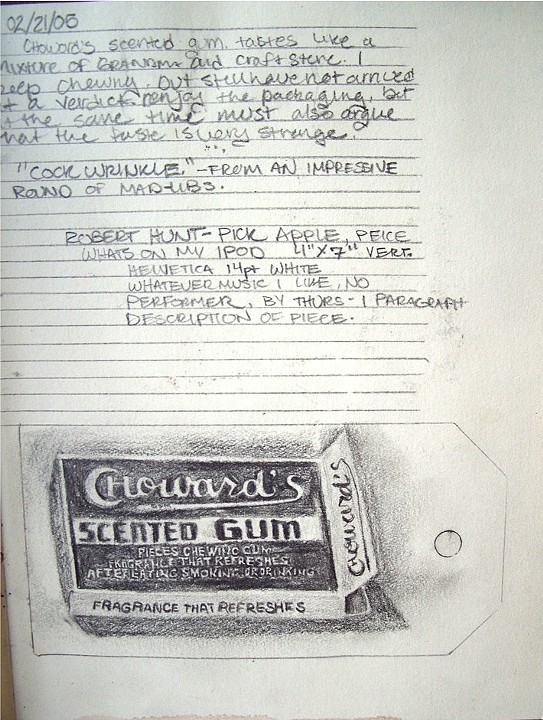 02/21/05
Choward's scented gum tastes like a
mixture of Grandma and craft store. I
keep chewing, but still have not arrived
at a verdict. I enjoy the packaging, but
at the same time must also argue
that the taste is very strange.
"COCK WRINKLE." -FROM AN IMPRESSIVE
ROUND OF MAD-LIBS.
ROBERT HUNT- PICK APPLE, PEICE
WHATS ON MY IPOD 4"X7" VERT.
HELVETICA 14pt WHITE
WHATEVER MUSIC I LIKE, NO
PERFORMER, BY THURS- 1 PARAGRAPH
DESCRIPTION OF PIECE.
CHoward's
CHoward's
SCENTED GUM
PIECES CHEWING GUM
FRAGRANCE THAT REFRESHES
AFTER EATING SMOKING OR DRINKING
FRAGRANCE THAT REFRESHES